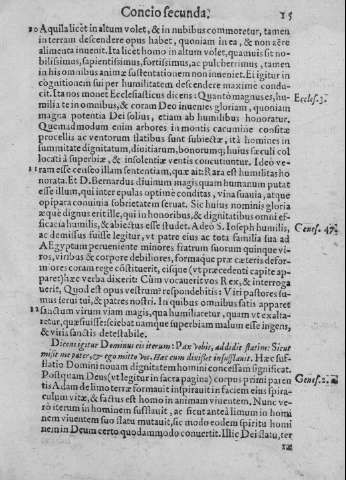 Concio secunda. 15
10 Aquila licèt in altum volet, & in nubibus commoretur, tamen
in terram descendere opus habet, quoniam in ea, & non aëre
alimenta invenit. Ita licèt homo in altum volet, quamuis sit no-
bilissimus, sapientissimus, fortissimus, ac pulcherrimus, tamen
in his omnibus animæ sustentationem non inveniet. Et igitur in
cognitionem sui per humilitatem descendere maxime condu-
cit. Ita nos monet Ecclesiasticus dicens: Quantò magnus es, hu-
milia te in omnibus, & coram Deo invenies gloriam, quoniam
magna potentia Dei solius, etiam ab humilibus honoratur.
Quemadmodum enim arbores in montis cacumine constitæ
procellis ac ventorum flatibus sunt subiectæ, ità homines in
summitate dignitatum, divitiarum, honorumq; huius sæculi col
locati à superbiæ, & insolentiæ ventis concutiuntur. Ideo ve-
11 ram esse censeo illam sententiam, quæ ait: Rara est humilitas ho
norata. Et D. Bernardus divinum magis quam humanum putat
esse illum, qui inter epulas optimè conditas, vina suavia, atque
opipara convivia sobrietatem servat. Sic huius nominis gloria
æquè dignus erit ille, qui in honoribus, & dignitatibus omni ef-
ficacia humilis, & abiectus esse studet. Adeò S. Ioseph humilis,
ac demissus fuisse legitur, vt patre eius ac tota familia sua ad
Aegyptum perveniente minores fratrum suorum quinque vi-
ros, viribus & corpore debiliores, formaque præ cæteris defor-
miores coram rege cõstituerit, eisque (vt præcedenti capite ap-
paret) hæc verba dixerit: Cùm vocaverit vos Rex, & interroga
verit, Quod est opus vestrum? respondebitis: Viri pastores su-
mus servi tui, & patres nostri. In quibus omnibus satis apparet
12 sanctum virum viam magis, qua humiliaretur, quam vt exalta-
retur, quæsivisse: sciebat namque superbiam malum esse ingens,
& viris sanctis detestabile.
Dicens igitur Dominus eis iterum: Pax vobis, addidit statim: Sicut
misit me pater, & ego mitto vos. Hæc cum dixisset insufflavit. Hæc suf-
flatio Domini novam dignitatem homini concessam significat.
Postquam Deus (vt legitur in sacra pagina) corpus primi paren
tis Adam de limo terræ formavit inspiravit in faciem eius spira-
culum vitæ, & factus est homo in animam viventem. Nunc ve-
rò iterum in hominem sufflavit, ac sicut anteà limum in homi
nem viventum suo flatu mutavit, sic modo eodem spiritu homi
nem in Deum certo quodammodo convertit. Illic Dei flatu, ter
Eccles. 3.
Genes. 47.
Genes. 2.